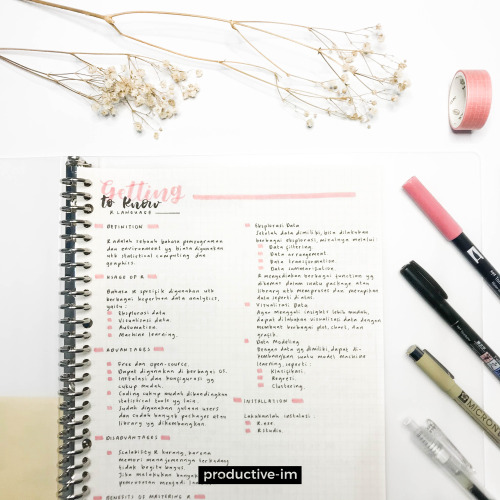 Getting
to know
R LANGUAGE
DEFINITION
R adalah sebuah bahasa pemrograman
dan environment yg biasa digunakan
utk statistical computing dan
graphics.
USAGE OF R
Bahasa R spesifik digunakan utk
berbagai keperluan data analytics,
yaitu :
Eksplorasi data.
Visualisasi data.
Automation.
Machine learning.
ADVANTAGES
Free dan open-source.
Dapat digunakan di berbagai OS.
Instalasi dan konfigurasi yg
cukup mudah.
Coding cukup mudah dibandingkan
statistical tools yg lain.
Sudah digunakan jutaan users
dan sudah banyak packages atau
library yg dikembangkan.
DISADVANTAGES
Scalability R kurang, karena
memori manajemennya terkadang
tidak begitu bagus.
Jika melakukan banyak
pemrosesan menjadi
BENEFITS OF MASTERING R
Eksplorasi Data
Setelah data dimiliki, bisa dilakukan
berbagai eksplorasi, misalnya melalui
Data filtering.
Data arrangement.
Data transformation.
Data summarization.
R menyediakan berbagai function yg
dikemas dalam suatu package atau
library utk memproses dan merapikan
data seperti di atas.
Visualisasi Data
Agar menggali insights lebih mudah,
dapat dilakukan visualisasi data dengan
membuat berbagai plot, chart, dan
grafik.
Data Modeling
Dengan data yg dimiliki, dapat di-
kembangkan suatu model machine
learning, seperti :
Klasifikasi.
Regresi.
Clustering.
INSTALLATION
Lakukanlah instalasi :
R.exe.
RStudio.
MICRON
productive-im